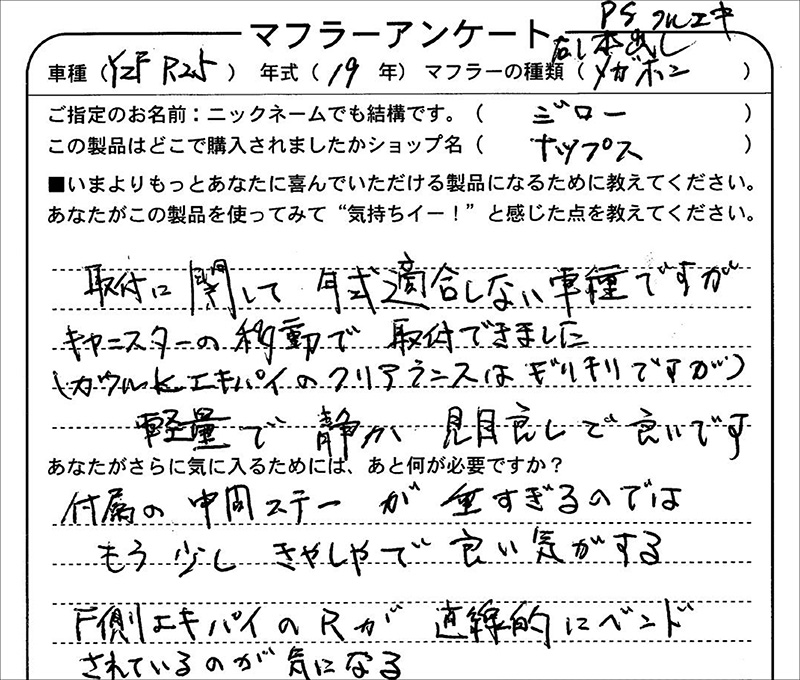 PS フルエキ
マフラーアンケート 右1本出し
車種（YZF R25） 年式（19 年） マフラーの種類（メガホン）
ご指定のお名前：ニックネームでも結構です。（ ジロー ）
この製品はどこで購入されましたかショップ名（ ナップス ）
■いまよりもっとあなたに喜んでいただける製品になるために教えてください。
あなたがこの製品を使ってみて“気持ちイー！”と感じた点を教えてください。
取付に関して 年式適合しない車種ですが
キャニスターの移動で 取付できました
（カウルとエキパイのクリアランスはギリギリですが）
軽量で 静か 見目良しで良いです
あなたがさらに気に入るためには、あと何が必要ですか？
付属の中間ステーが 重すぎるのでは
もう少し きゃしゃで 良い気がする
F側エキパイのRが 直線的にベンド
されているのが気になる